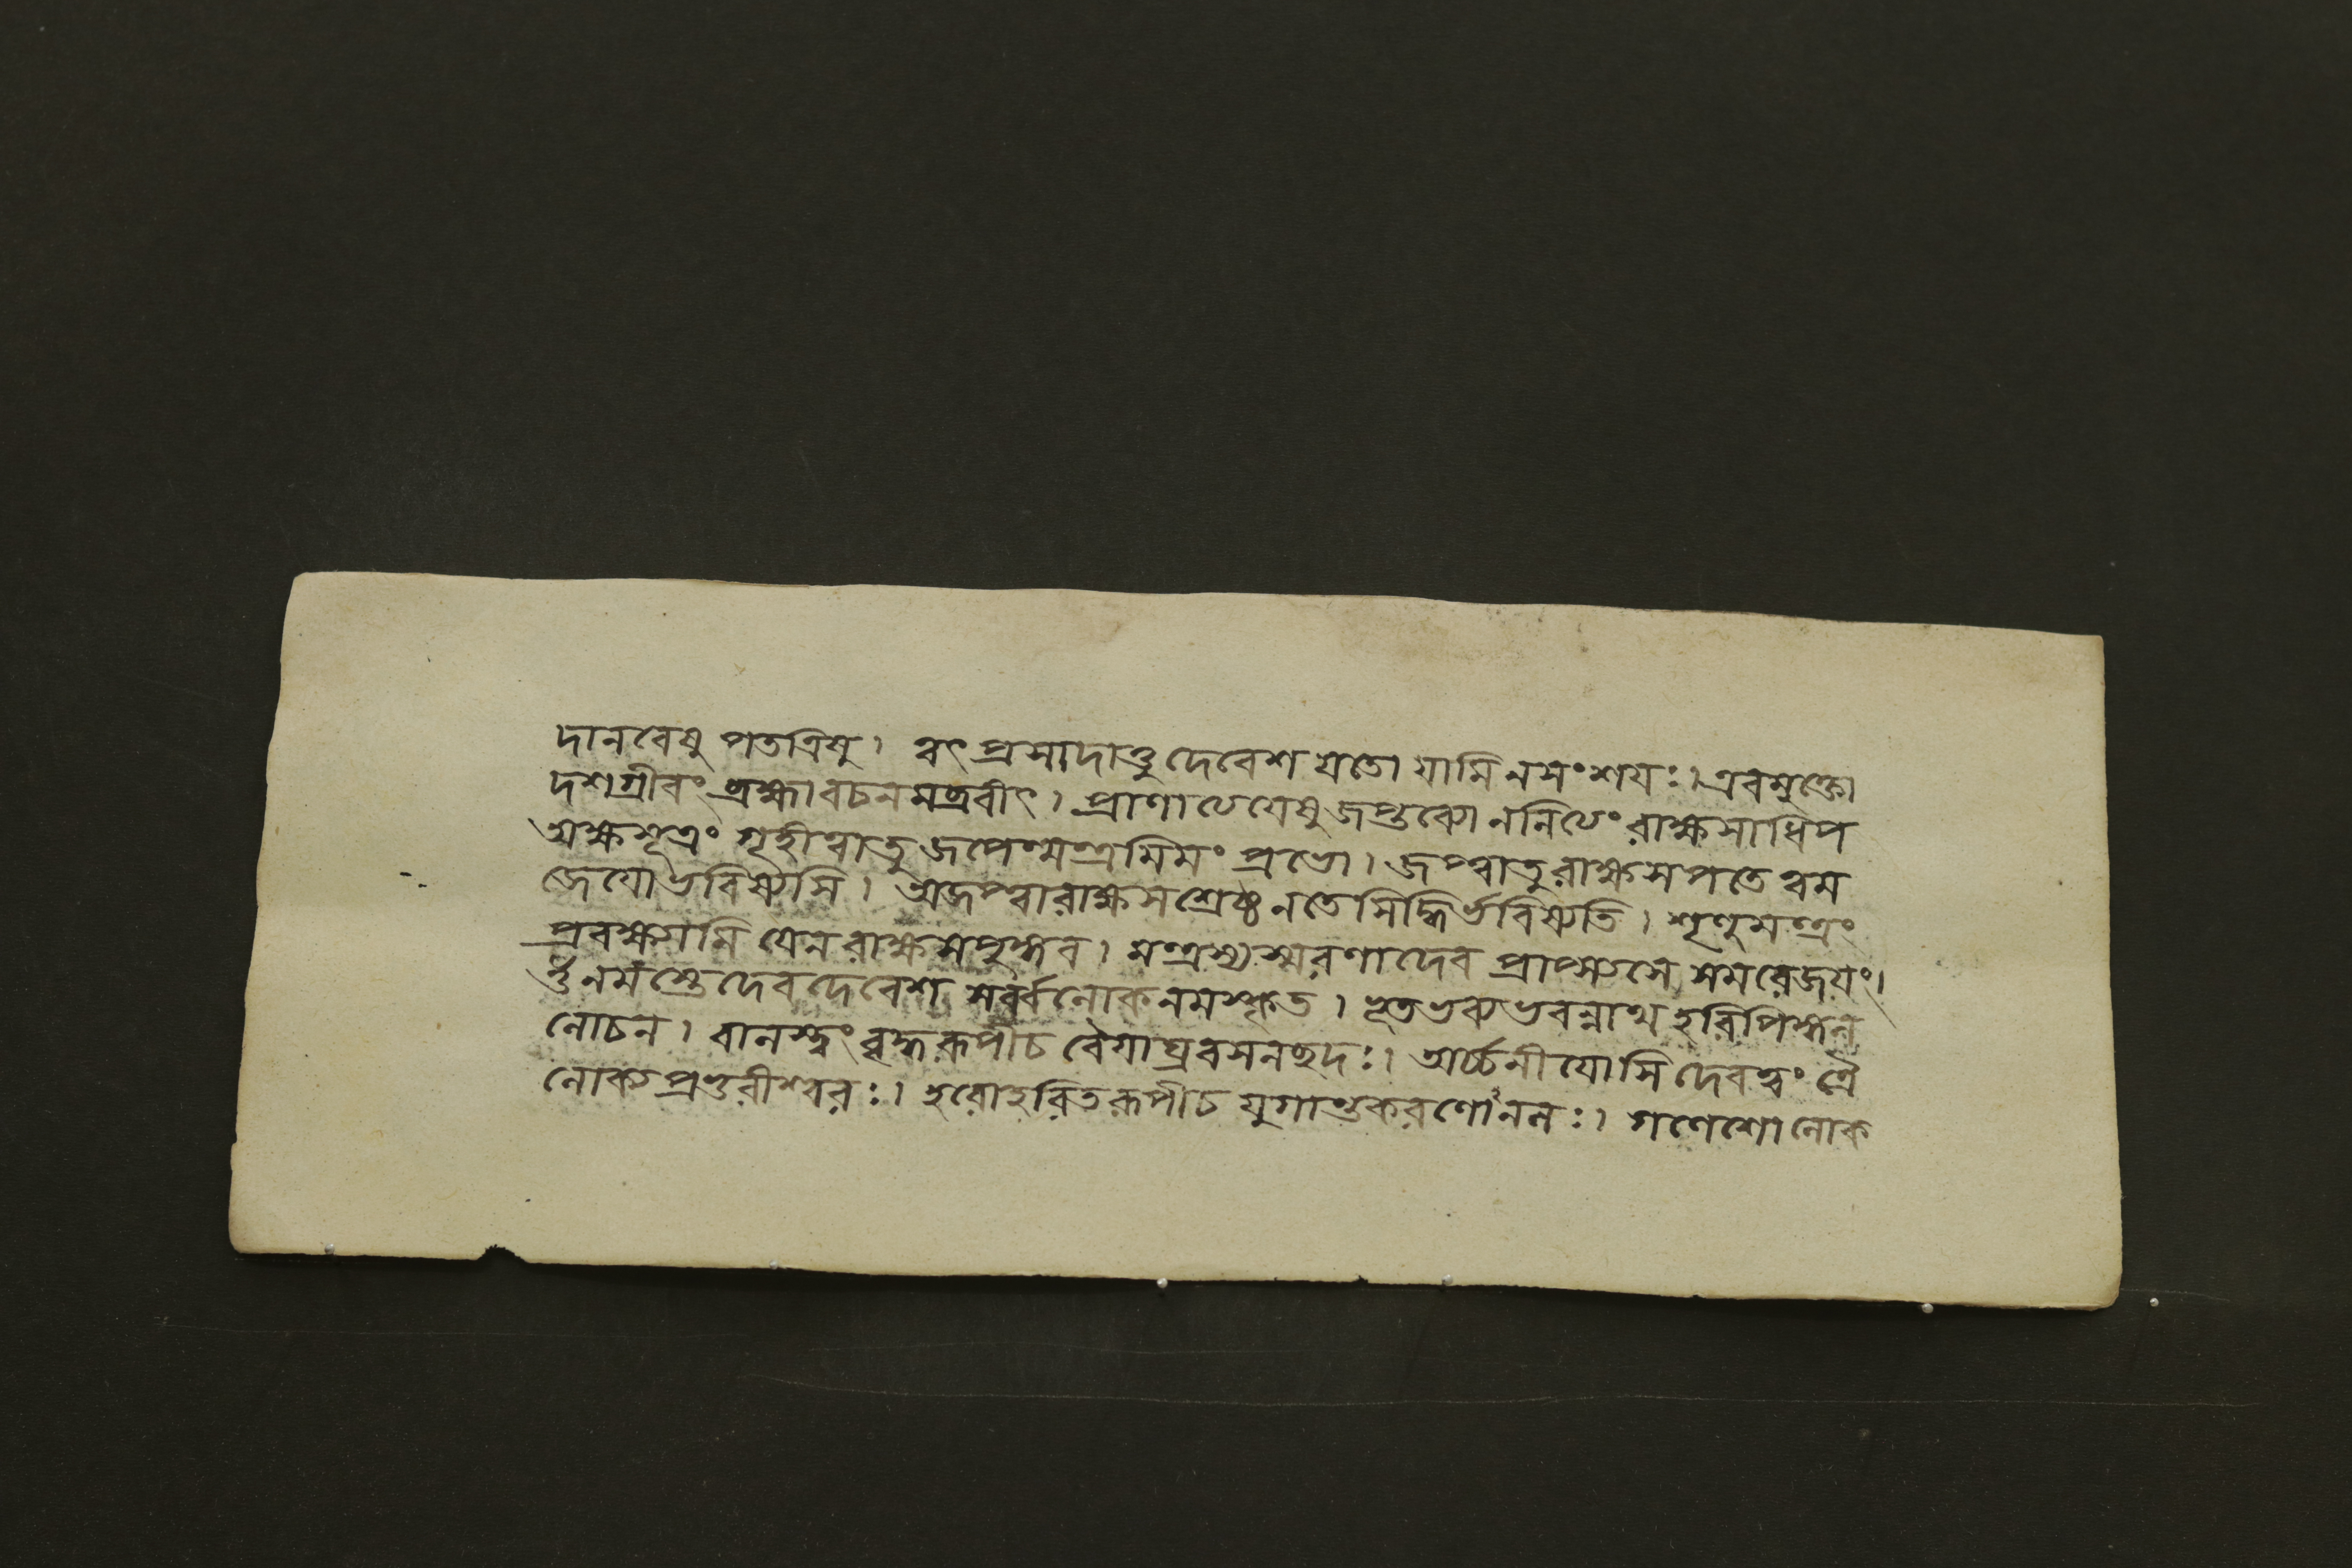 দানবেষু পতত্রিষু। ত্বৎ প্রসাদাত্তু দেবেশ যতো যামি ন সংশয়ঃ। এবমুক্তো
দশগ্রীবং ব্রহ্মা বচনমব্রবীৎ। প্রাণাত্যেয়েষু জপ্তব্যো ন নিত্যং রাক্ষসাধিপ
অক্ষসূত্রং গৃহীত্বাতু জপেন্মন্ত্রমিমং প্রভো। জপ্ত্বাতু রাক্ষসপতে ত্বম
জেয়ো ভবিষ্যসি। অজপ্ত্বা রাক্ষসশ্রেষ্ঠ ন তে সিদ্ধির্ভবিষ্যতি। শৃণুমন্ত্রং
প্রবক্ষ্যামি যেন রাক্ষসপুঙ্গব। মন্ত্রস্য স্মরণাদেব প্রাপ্স্যসে সমরে জয়ং।
ওঁনমস্তে দেবদেবেশ সর্ব্বলোকনমস্কৃত। ভূতভব্যভবন্নাথ হরিপিঙ্গল
লোচন। বালস্ত্বং বৃদ্ধরূপী চ বৈয়াঘ্রবসনচ্ছদঃ। অর্চ্চনীয়োসি দেবত্বং ত্রৈ
লোক্যপ্রভুরীশ্বরঃ। হরো হরিতরূপী চ যুগান্তকরণোঽনলঃ। গণেশো লোক